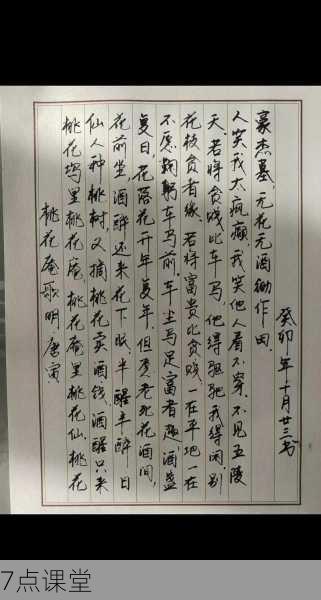 桃花庵歌 明 唐寅
桃花坞里桃花庵,桃花庵里桃花仙.桃花
仙人种桃树,又摘桃花卖酒钱.酒醒只来
花前坐,酒醉还来花下眠.半醒半醉日
复日,花落花开年复年.但愿老死花酒间,
不愿鞠躬车马前.车尘马足富者趣,酒盏
花枝贫者缘.若将富贵比贫贱,一在平地一在
天.若将贫贱比车马,他得驱驰我得闲.别
人笑我太疯癫,我笑他人看不穿.不见五陵
豪杰墓,无花无酒锄作田.
癸卯年十月廿三书
7点课堂